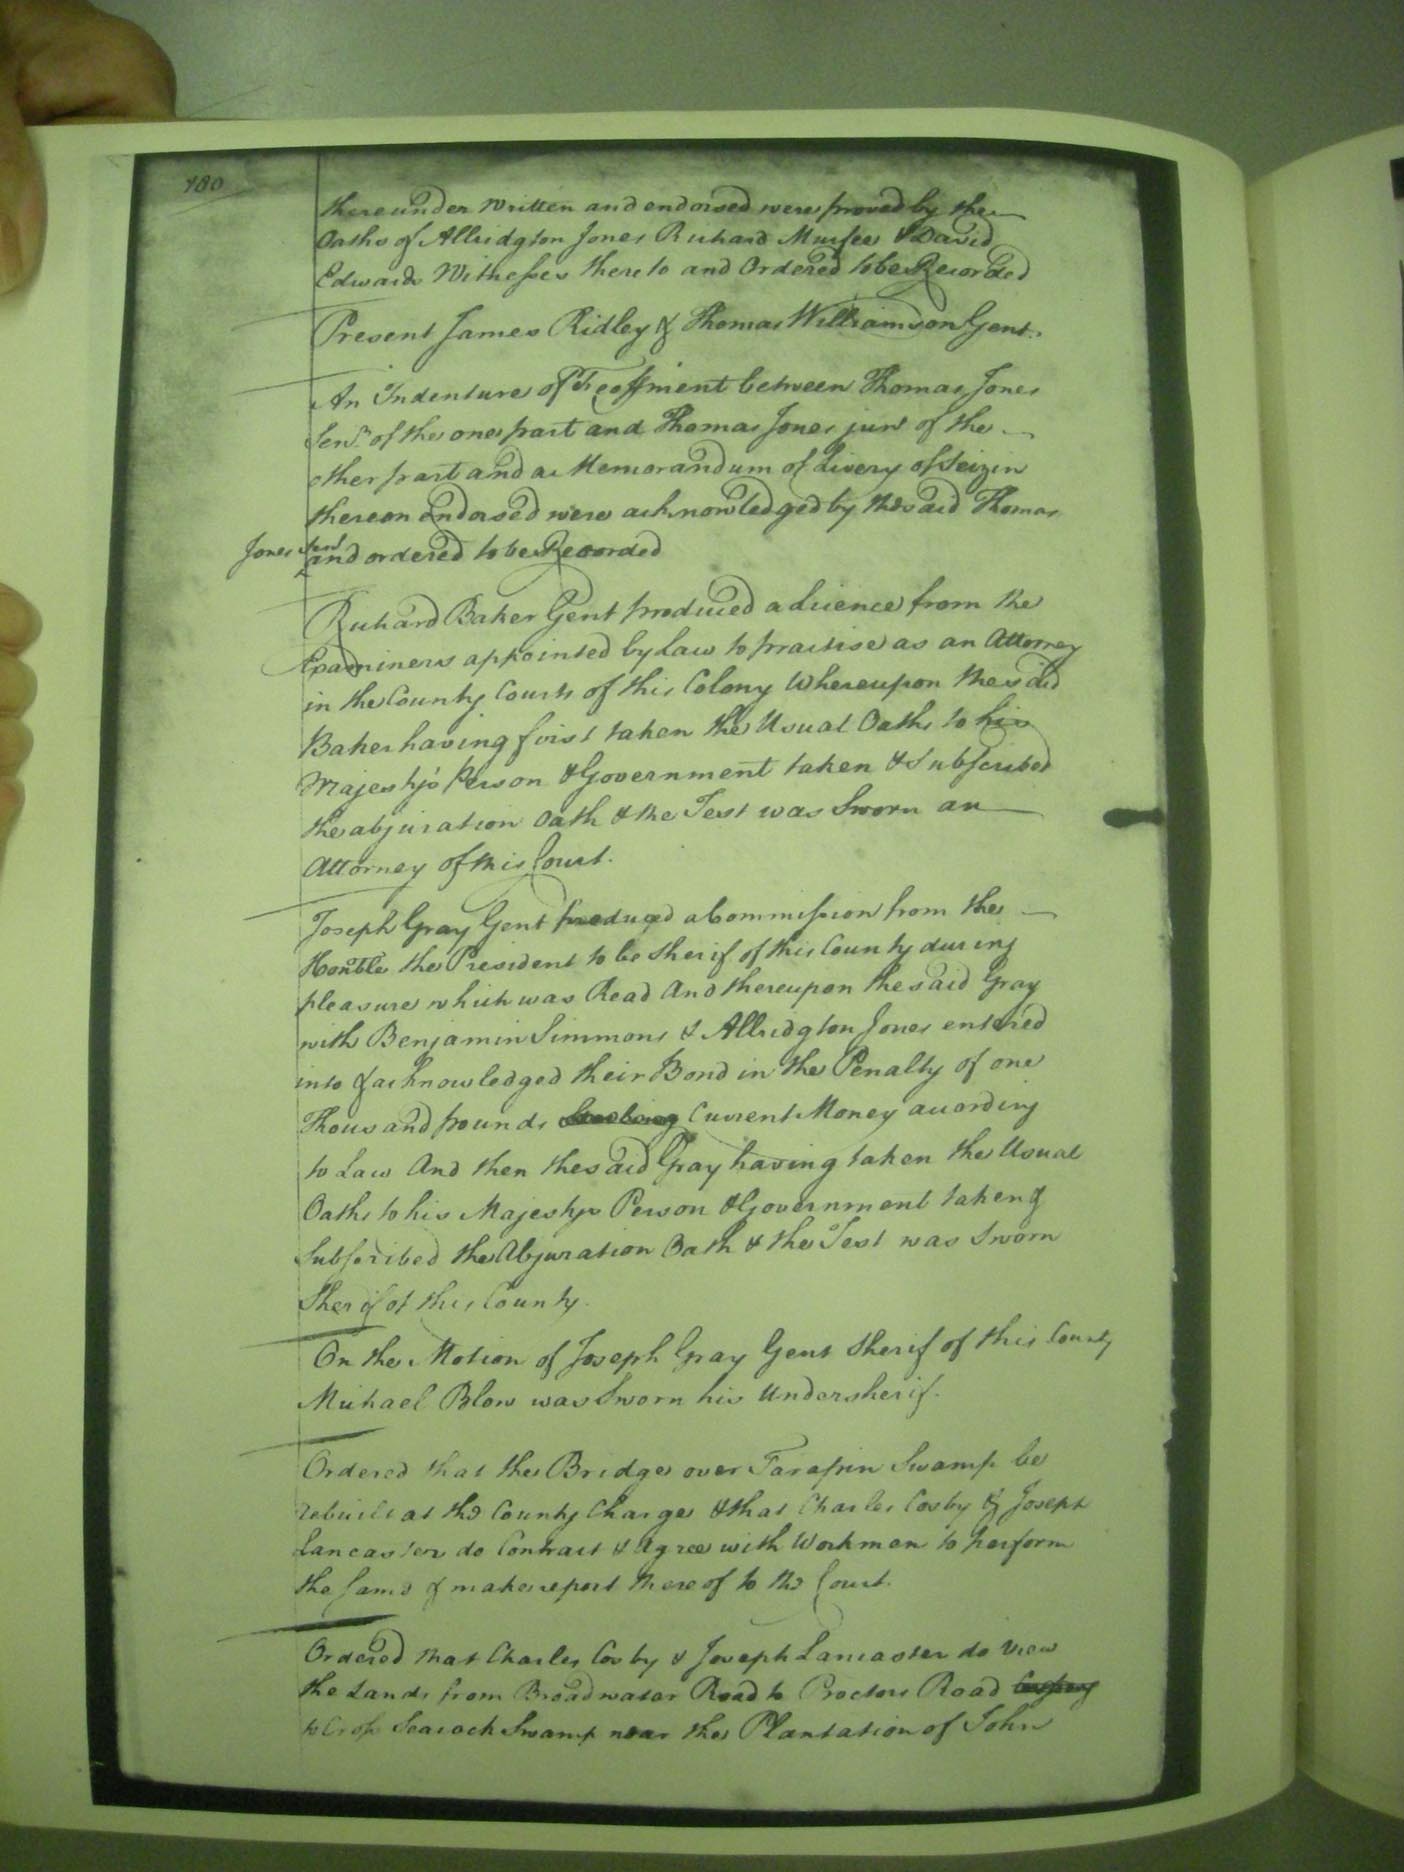 180
thereunder Written and endorsed were proved by the
Oaths of Allridgton Jones Richard Murfee & David
Edwards Witnesses thereto and Ordered to be Recorded
Present James Ridley & Thomas Williamson Gent.
An Indenture of Feoffment between Thomas Jones
Senr. of the one part and Thomas Jones junr of the
other part and a Memorandum of Livery of Seizin
thereon endorsed were acknowledged by the said Thomas
Jones Senr and ordered to be Recorded
Richard Baker Gent produced a licence from the
Examiners appointed by Law to practise as an Attorney
in the County Courts of this Colony Whereupon the said
Baker having first taken the Usual Oaths to his
Majesty's Person & Government taken & Subscribed
the abjuration Oath & the Test was Sworn an
Attorney of this Court.
Joseph Gray Gent produced a Commission from the
Honble the President to be Sherif of this County during
pleasure which was Read And thereupon the said Gray
with Benjamin Simmons & Allridgton Jones entered
into & acknowledged their Bond in the Penalty of one
Thousand pounds Current Money according
to Law And then the said Gray having taken the Usual
Oaths to his Majestys Person & Government taken &
Subscribed the Abjuration Oath & the Test was Sworn
Sherif of this County.
On the Motion of Joseph Gray Gent Sherif of this County
Michael Blow was Sworn his Undersherif.
Ordered that the Bridge over Tarapin Swamp be
rebuilt at the County Charge & that Charles Cosby & Joseph
Lancaster do Contract & Agree with Workmen to perform
the Same & make report thereof to the Court.
Ordered that Charles Cosby & Joseph Lancaster do View
the Lands from Broadwater Road to Proctors Road
to Cross Seacock Swamp near the Plantation of John